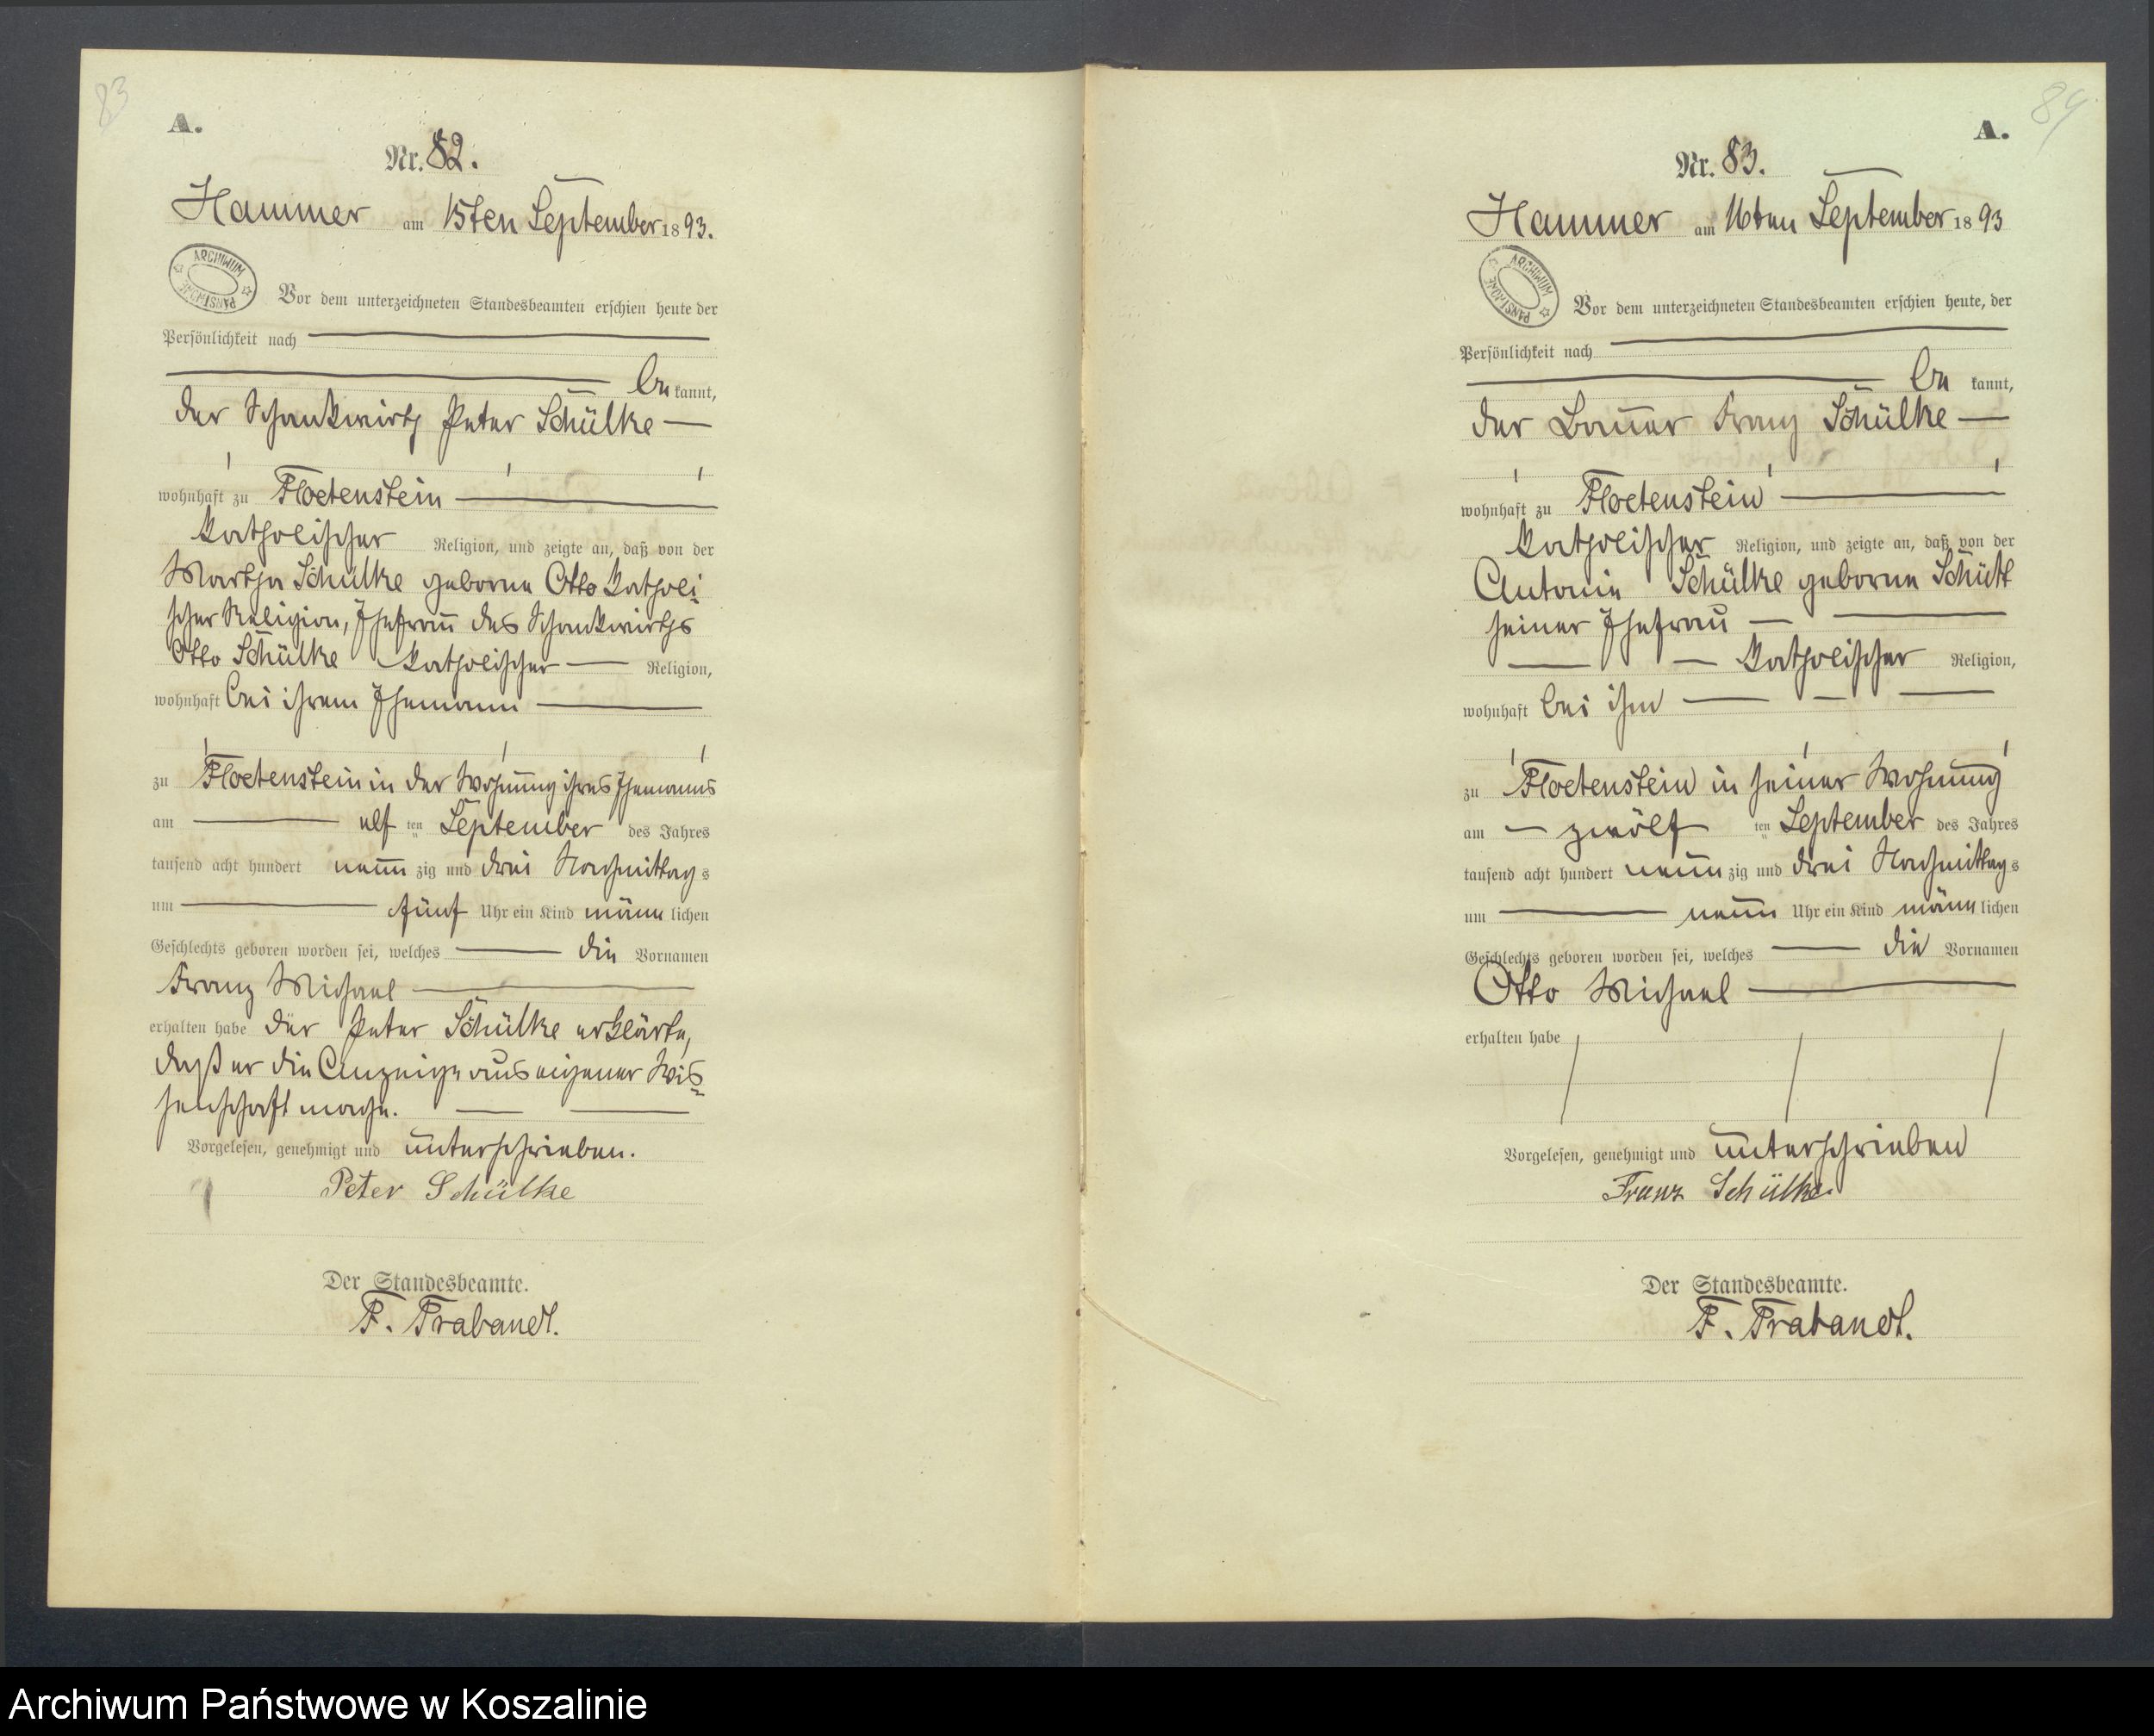 83
A.
Nr. 82.
Hammer am 15ten September 1893.
ARCHIWUM PAŃSTWOWE
Vor dem unterzeichneten Standesbeamten erschien heute der
Persönlichkeit nach
be kannt,
der Schankwirth Peter Schülke
wohnhaft zu Floetenstein
katholischer Religion, und zeigte an, daß von der
Martha Schülke geborne Otto katholi-
scher Religion, Ehefrau des Schankwirths
Otto Schülke katholischer Religion,
wohnhaft bei ihrem Ehemann
zu Floetenstein in der Wohnung ihres Ehemanns
am elf ten September des Jahres
tausend acht hundert neun zig und drei Nachmittag s
um fünf Uhr ein Kind männ lichen
Geschlechts geboren worden sei, welches die Vornamen
Franz Michael
erhalten habe Der Peter Schülke erklärte,
daß er die Anzeige aus eigener Wis-
senschaft mache.
Vorgelesen, genehmigt und unterschrieben.
Peter Schülke
Der Standesbeamte.
F. Trabandt.
84
A.
Nr. 83.
Hammer am 16ten September 1893
ARCHIWUM PAŃSTWOWE
Vor dem unterzeichneten Standesbeamten erschien heute, der
Persönlichkeit nach
be kannt,
der Bauer Franz Schülke
wohnhaft zu Floetenstein
katholischer Religion, und zeigte an, daß von der
Antonie Schülke geborne Schütt
seiner Ehefrau
katholischer Religion,
wohnhaft bei ihm
zu Floetenstein in seiner Wohnung
am zwölf ten September des Jahres
tausend acht hundert neun zig und drei Nachmittag s
um neun Uhr ein Kind männ lichen
Geschlechts geboren worden sei, welches die Vornamen
Otto Michael
erhalten habe
Vorgelesen, genehmigt und unterschrieben
Franz Schülke.
Der Standesbeamte.
F. Trabandt.
Archiwum Państwowe w Koszalinie